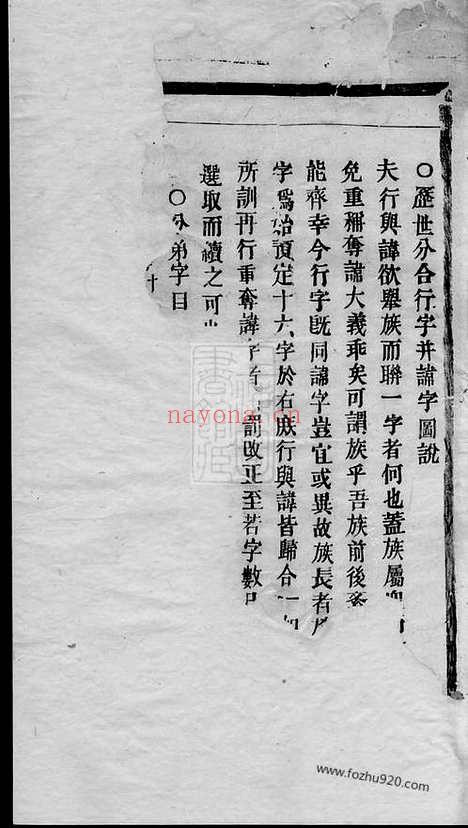 ○歷世分合行字并諱字圖說
夫行與諱欲舉族而聯一字者何也蓋族屬
免重稱奪諱大義乖矣可謂族乎吾族前後
能齊幸今行字既同諱字豈宜或異故族長者
字爲始預定十六字於右庶行與諱皆歸合一
所訓再行重奪諱字者 罰改正至若字數
選取而續之可
○ 弟字曰
nayona.cn
www.fozhu920.com